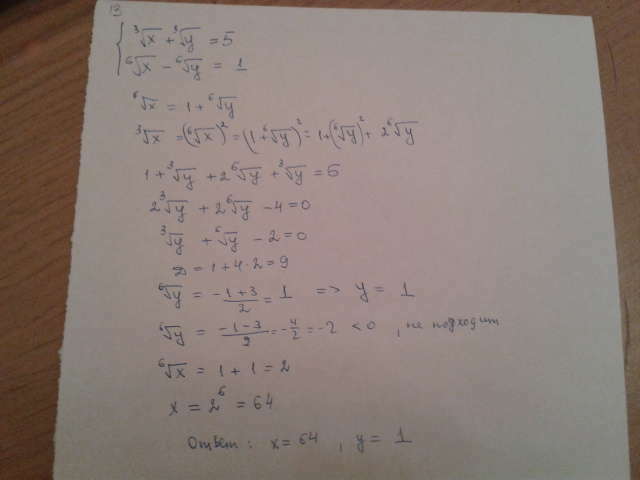 13
∛x + ∛y = 5
⁶√x − ⁶√y = 1
⁶√x = 1 + ⁶√y
∛x = (⁶√x)² = (1+⁶√y)² = 1+(⁶√y)² + 2⁶√y
1 + ∛y + 2⁶√y + ∛y = 5
2∛y + 2⁶√y − 4 = 0
∛y + ⁶√y − 2 = 0
D = 1 + 4·2 = 9
⁶√y = (−1+3)/2 = 1 => y = 1
⁶√y = (−1−3)/2 = −4/2 = −2 < 0, не подходит
⁶√x = 1 + 1 = 2
x = 2⁶ = 64
Ответ: x = 64, y = 1